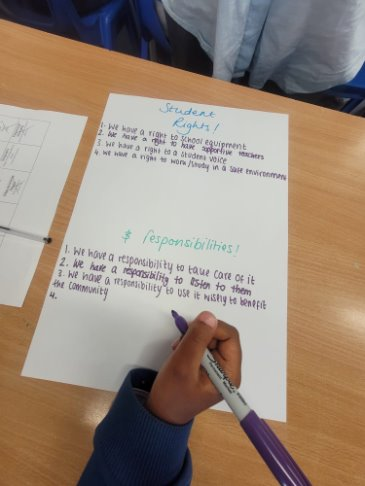 Student
Rights!
1. We have a right to school equipment
2. We have a right to have supportive teachers
3. We have a right to a student voice
4. We have a right to work/study in a safe environment
& responsibilities!
1. We have a responsibility to take care of it
2. We have a responsibility to listen to them
3. We have a responsibility to use it wisely to benefit
the community
4.
Sharpie